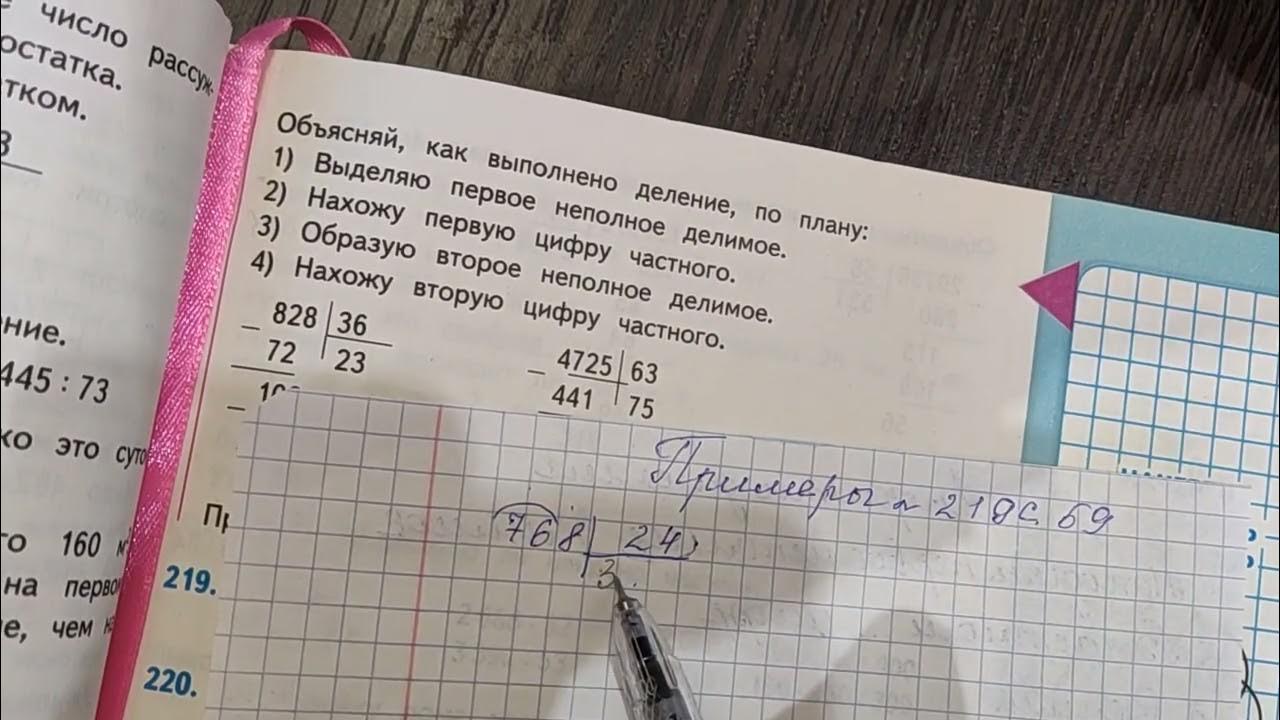 число рассуж-
остатка.
тком.
3
ние.
445 : 73
ко это суто
го 160 м
на перво
е, чем на
Объясняй, как выполнено деление, по плану:
1) Выделяю первое неполное делимое.
2) Нахожу первую цифру частного.
3) Образую второе неполное делимое.
4) Нахожу вторую цифру частного.
828 36
– 72 23
–
4725 63
– 441 75
Пр
219.
220.
Примеры 219 с 59
768 24
3